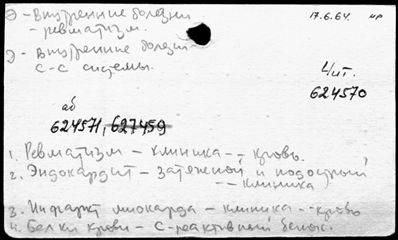 Э - Внутренние болезни
- ревматизм.
17.6.64. нр
Э - Внутренние болезни
С-С системы.
Чит.
624570
аб
624571, 627459
1. Ревматизм - клиника -- кровь.
2. Эндокардит - затяжной и подострый
-- клиника
3. Инфаркт миокарда - клиника -- кровь
4. Белки крови - С-реактивный белок.